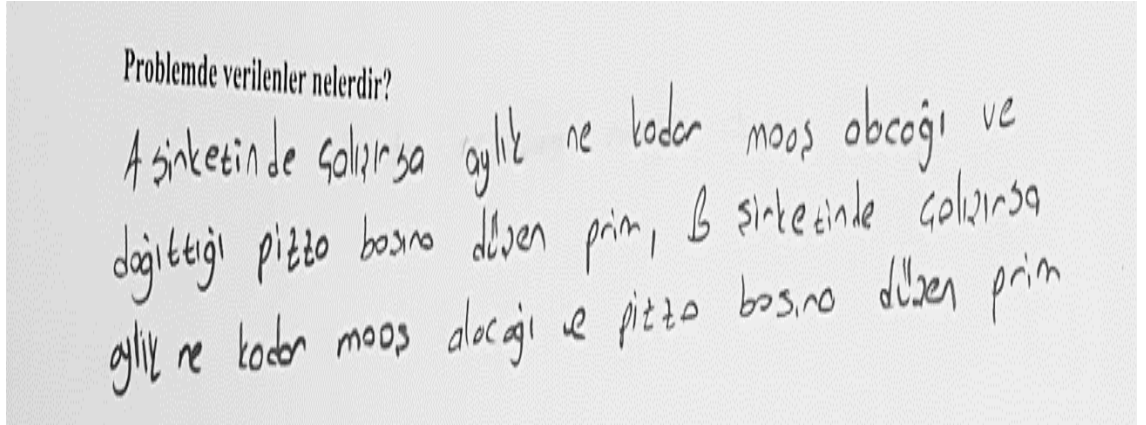 Problemde verilenler nelerdir?
A şirketinde çalışırsa aylık ne kadar maaş alacağı ve
dağıttığı pizza başına düşen prim, B şirketinde çalışırsa
aylık ne kadar maaş alacağı ve pizza başına düşen prim